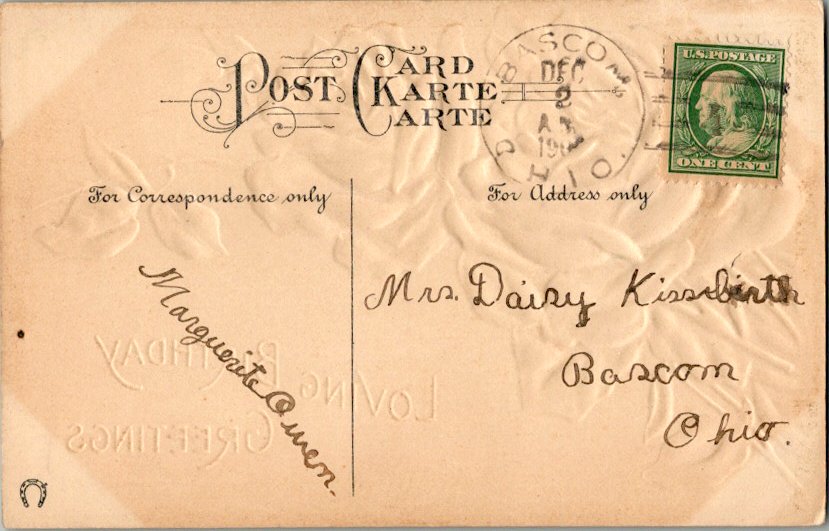 POST CARD
KARTE
CARTE
BASCOM
DEC
2
OHIO.
U.S. POSTAGE
ONE CENT
For Correspondence only
For Address only
Marguerite Owen.
Mrs. Daisy Kissabirth
Bascom
Ohio.
LOVING BIRTHDAY
GREETINGS